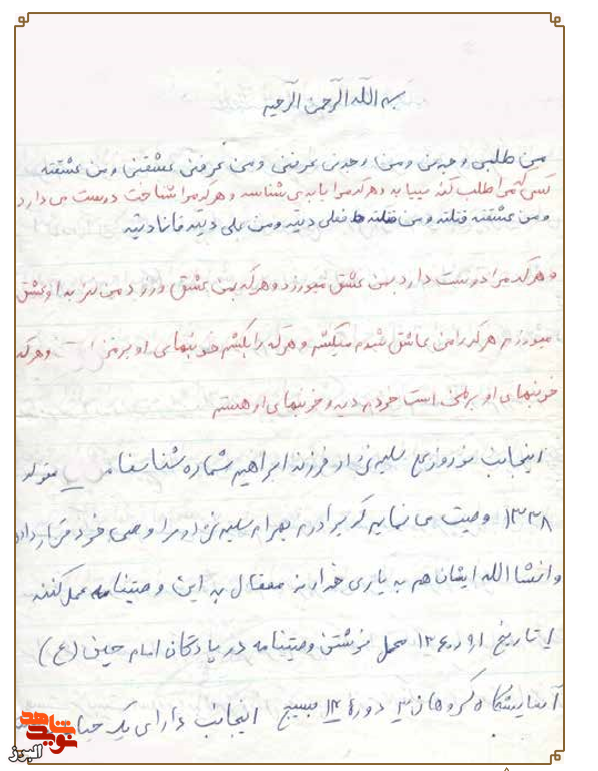 بسم الله الرحمن الرحیم
من طلبنی وجدنی ومن وجدنی عرفنی ومن عرفنی عشقنی ومن عشقنی
کسی که مرا طلب کند میابد و هرکه مرا یابد می شناسد و هرکه مرا شناخت دوست می دارد
ومن عشقته قتلته ومن قتلته فعلی دیته ومن علی دیته فانا دیته
و هرکه مرا دوست دارد بمن عشق میورزد و هرکه بمن عشق ورزد من نیز به او عشق
میورزم هرکه را من عاشق شدم میکشم و هرکه را بکشم خونبهای او بر من است وهرکه
خونبهای او بر من است خودم دیه و خونبهای او هستم
اینجانب نوروزعلی سلیم نژاد فرزند ابراهیم شماره شناسنامه متولد
۱۳۳۸ وصیت می نمایم که برادرم بهرام سلیم نژاد را وصی خود قرار دادم
و انشا الله ایشان هم به یاری خداوند متعال به این وصیتنامه عمل کنند
محل نوشتن وصیتنامه در پادگان امام حسین (ع)
آسایشگاه گروهان ۳ دوره ۱۴ بسیج اینجانب دارای یک
شاهد
نوید
البرز